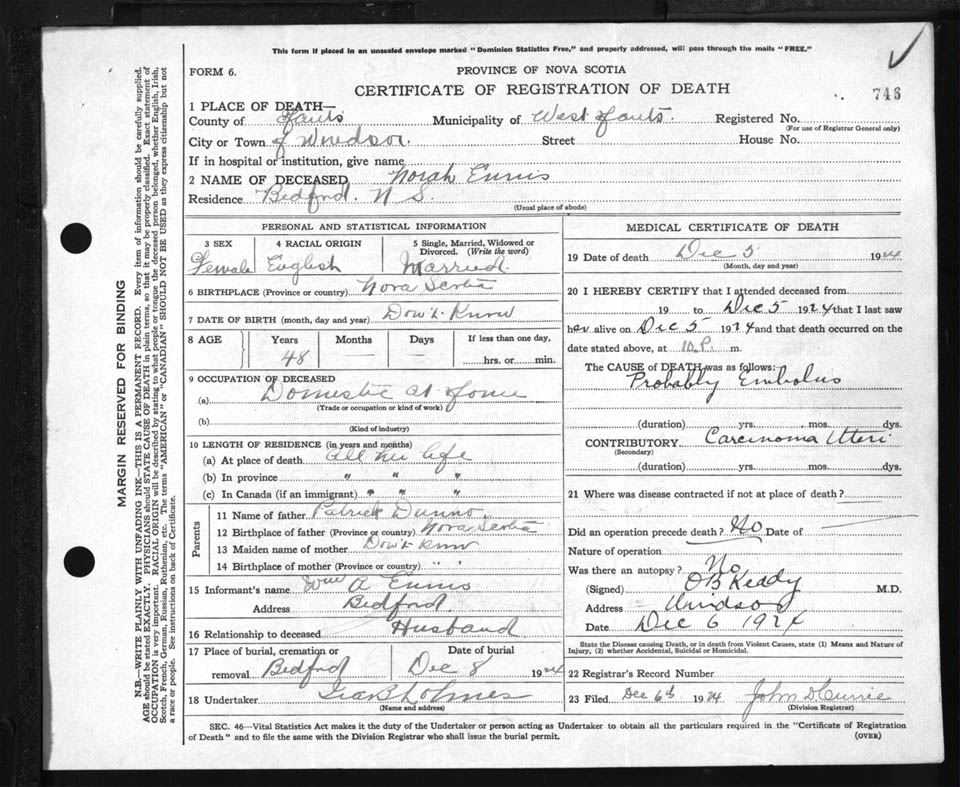 This form if placed in an unsealed envelope marked "Dominion Statistics Free," and properly addressed, will pass through the mails "FREE."
FORM 6.
PROVINCE OF NOVA SCOTIA
CERTIFICATE OF REGISTRATION OF DEATH
746
1 PLACE OF DEATH—
County of Hants Municipality of West Hants. Registered No.
(For use of Registrar General only)
City or Town of Windsor. Street House No.
If in hospital or institution, give name
2 NAME OF DECEASED Norah Ennis
Residence Bedford. N S.
(Usual place of abode)
PERSONAL AND STATISTICAL INFORMATION
3 SEX 4 RACIAL ORIGIN 5 Single, Married, Widowed or Divorced. (Write the word)
Female English Married.
6 BIRTHPLACE (Province or country) Nova Scotia
7 DATE OF BIRTH (month, day and year) Don't Know
8 AGE Years Months Days If less than one day,
48 — — hrs. or min.
9 OCCUPATION OF DECEASED
(a) Domestic at Home
(Trade or occupation or kind of work)
(b)
(Kind of industry)
10 LENGTH OF RESIDENCE (in years and months)
(a) At place of death All her life
(b) In province " " "
(c) In Canada (if an immigrant) " " "
Parents
11 Name of father Patrick
12 Birthplace of father (Province or country) Nova Scotia
13 Maiden name of mother Don't Know
14 Birthplace of mother (Province or country) " "
15 Informant's name Wm A Ennis
Address Bedford.
16 Relationship to deceased Husband
17 Place of burial, cremation or removal Bedford
Date of burial Dec 8 1924
18 Undertaker Holmes
(Name and address)
MEDICAL CERTIFICATE OF DEATH
19 Date of death Dec 5 1924
(Month, day and year)
20 I HEREBY CERTIFY that I attended deceased from
19 to Dec 5 1924 that I last saw
her alive on Dec 5 1924 and that death occurred on the
date stated above, at 10 P. m.
The CAUSE of DEATH was as follows:
Probably Embolus
(duration) yrs. mos. dys.
CONTRIBUTORY Carcinoma Uteri
(Secondary)
(duration) yrs. mos. dys.
21 Where was disease contracted if not at place of death?
Did an operation precede death? No Date of
Nature of operation
Was there an autopsy? No
(Signed) O B Keddy M.D.
Address Windsor
Date Dec 6 1924
State the Disease causing Death, or in death from Violent Causes, state (1) Means and Nature of
Injury, (2) whether Accidental, Suicidal or Homicidal.
22 Registrar's Record Number
23 Filed Dec 6th 1924 John D Currie
(Division Registrar)
SEC. 46—Vital Statistics Act makes it the duty of the Undertaker or person acting as Undertaker to obtain all the particulars required in the "Certificate of Registration
of Death" and to file the same with the Division Registrar who shall issue the burial permit.
(OVER)
MARGIN RESERVED FOR BINDING
N.B.—WRITE PLAINLY WITH UNFADING INK—THIS IS A PERMANENT RECORD. Every item of information should be carefully supplied.
AGE should be stated EXACTLY. PHYSICIANS should STATE CAUSE OF DEATH in plain terms, so that it may be properly classified. Exact statement of
OCCUPATION is very important. RACIAL ORIGIN will be described by stating to what people or tongue the deceased person belonged, whether English, Irish,
Scotch, French, German, Russian, Ruthenian, etc. The terms "AMERICAN" or "CANADIAN" SHOULD NOT BE USED as they express citizenship but not
a race or people. See instructions on back of Certificate.